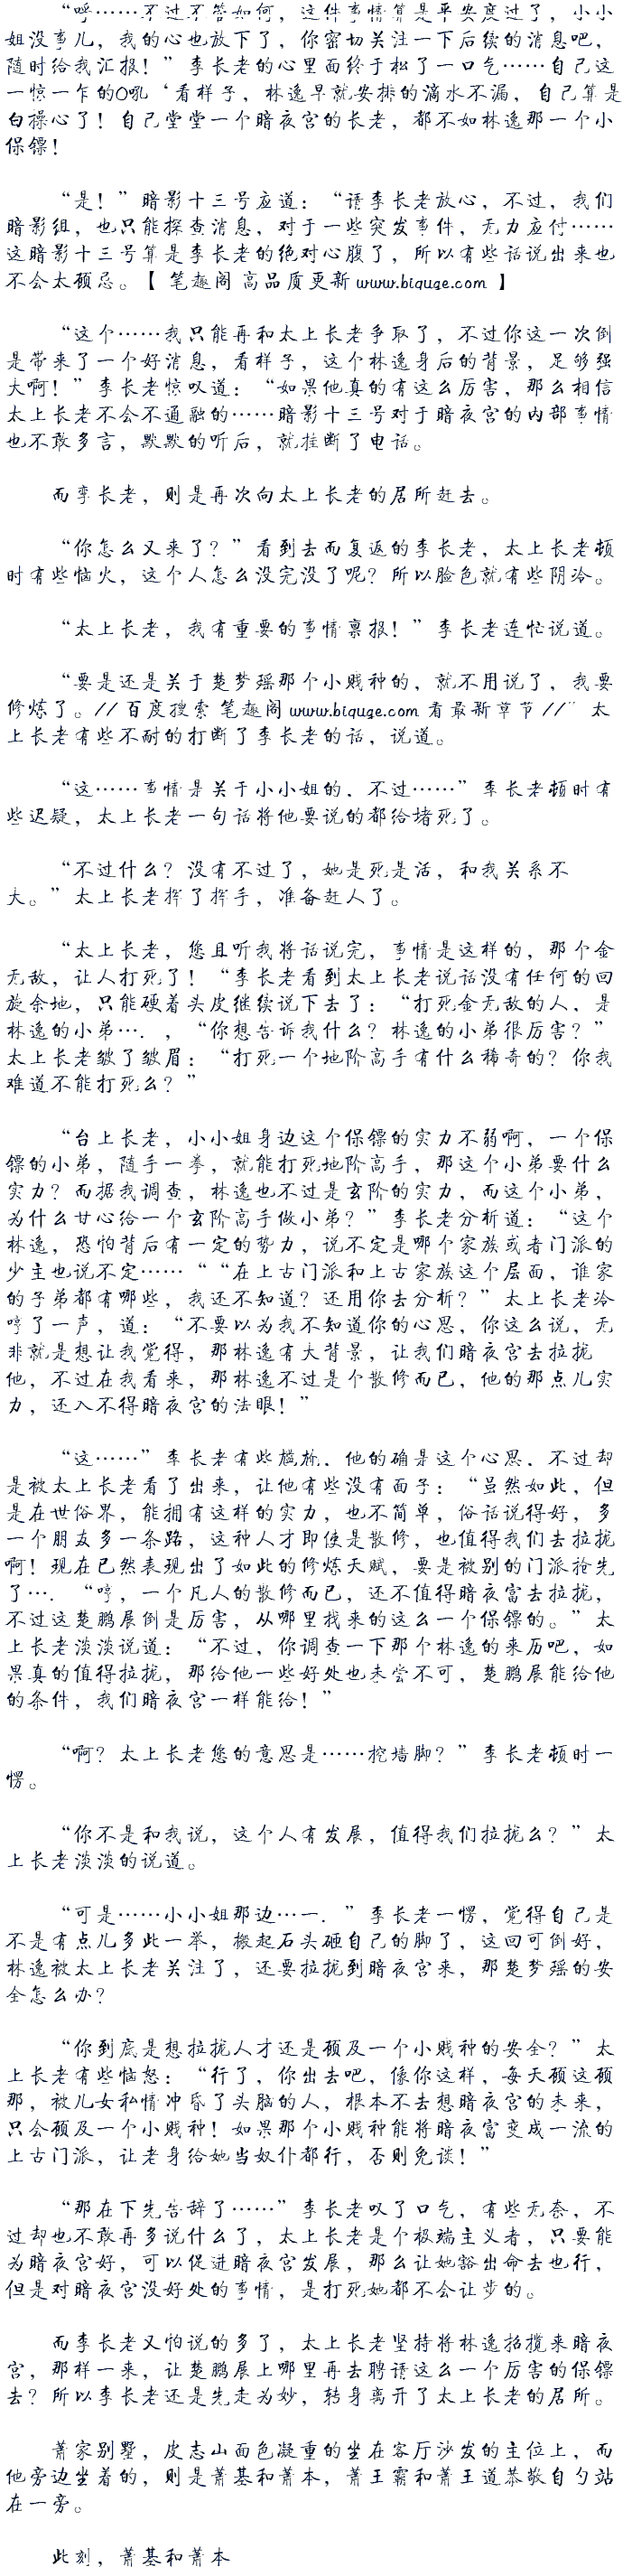 “呼……不过不管如何，这件事情算是平安度过了，小小
姐没事儿，我的心也放下了，你密切关注一下后续的消息吧，
随时给我汇报！”李长老的心里面终于松了一口气……自己这
一惊一乍的O吼‘看样子，林逸早就安排的滴水不漏，自己算是
白操心了！自己堂堂一个暗夜宫的长老，都不如林逸那一个小
保镖！
“是！”暗影十三号应道：“请李长老放心，不过，我们
暗影组，也只能探查消息，对于一些突发事件，无力应付……
这暗影十三号算是李长老的绝对心腹了，所以有些话说出来也
不会太顾忌。【 笔趣阁 高品质更新 www.biquge.com 】
“这个……我只能再和太上长老争取了，不过你这一次倒
是带来了一个好消息，看样子，这个林逸身后的背景，足够强
大啊！”李长老惊叹道：“如果他真的有这么厉害，那么相信
太上长老不会不通融的……暗影十三号对于暗夜宫的内部事情
也不敢多言，默默的听后，就挂断了电话。
而李长老，则是再次向太上长老的居所赶去。
“你怎么又来了？”看到去而复返的李长老，太上长老顿
时有些恼火，这个人怎么没完没了呢？所以脸色就有些阴冷。
“太上长老，我有重要的事情禀报！”李长老连忙说道。
“要是还是关于楚梦瑶那个小贱种的，就不用说了，我要
修炼了。//百度搜索 笔趣阁 www.biquge.com 看最新章节//¨ 太
上长老有些不耐的打断了李长老的话，说道。
“这……事情是关于小小姐的．不过……”李长老顿时有
些迟疑，太上长老一句话将他要说的都给堵死了。
“不过什么？没有不过了，她是死是活，和我关系不
大。”太上长老挥了挥手，准备赶人了。
“太上长老，您且听我将话说完，事情是这样的，那个金
无敌，让人打死了！“李长老看到太上长老说话没有任何的回
旋余地，只能硬着头皮继续说下去了：“打死金无敌的人，是
林逸的小弟…．，“你想告诉我什么？林逸的小弟很厉害？”
太上长老皱了皱眉：“打死一个地阶高手有什么稀奇的？你我
难道不能打死么？”
“台上长老，小小姐身边这个保镖的实力不弱啊，一个保
镖的小弟，随手一拳，就能打死地阶高手，那这个小弟要什么
实力？而据我调查，林逸也不过是玄阶的实力，而这个小弟，
为什么甘心给一个玄阶高手做小弟？”李长老分析道：“这个
林逸，恐怕背后有一定的势力，说不定是哪个家族或者门派的
少主也说不定……““在上古门派和上古家族这个层面，谁家
的子弟都有哪些，我还不知道？还用你去分析？”太上长老冷
哼了一声，道：“不要以为我不知道你的心思，你这么说，无
非就是想让我觉得，那林逸有大背景，让我们暗夜宫去拉拢
他，不过在我看来，那林逸不过是个散修而已，他的那点儿实
力，还入不得暗夜宫的法眼！”
“这……”李长老有些尴尬．他的确是这个心思．不过却
是被太上长老看了出来，让他有些没有面子：“虽然如此，但
是在世俗界，能拥有这样的实力，也不简单，俗话说得好，多
一个朋友多一条路，这种人才即使是散修，也值得我们去拉拢
啊！现在已然表现出了如此的修炼天赋，要是被别的门派抢先
了…．“哼，一个凡人的散修而已，还不值得暗夜富去拉拢，
不过这楚鹏展倒是厉害，从哪里找来的这么一个保镖的。”太
上长老淡淡说道：“不过，你调查一下那个林逸的来历吧，如
果真的值得拉拢，那给他一些好处也未尝不可，楚鹏展能给他
的条件，我们暗夜宫一样能给！”
“啊？太上长老您的意思是……挖墙脚？”李长老顿时一
愣。
“你不是和我说，这个人有发展，值得我们拉拢么？”太
上长老淡淡的说道。
“可是……小小姐那边…一．”李长老一愣，觉得自己是
不是有点儿多此一举，搬起石头砸自己的脚了，这回可倒好，
林逸被太上长老关注了，还要拉拢到暗夜宫来，那楚梦瑶的安
全怎么办？
“你到底是想拉拢人才还是顾及一个小贱种的安全？”太
上长老有些恼怒：“行了，你出去吧，像你这样，每天顾这顾
那，被儿女私情冲昏了头脑的人，根本不去想暗夜宫的未来，
只会顾及一个小贱种！如果那个小贱种能将暗夜富变成一流的
上古门派，让老身给她当奴仆都行，否则免谈！”
“那在下先告辞了……”李长老叹了口气，有些无奈，不
过却也不敢再多说什么了，太上长老是个极端主义者，只要能
为暗夜宫好，可以促进暗夜宫发展，那么让她豁出命去也行，
但是对暗夜宫没好处的事情，是打死她都不会让步的。
而李长老又怕说的多了，太上长老坚持将林逸招揽来暗夜
宫，那样一来，让楚鹏展上哪里再去聘请这么一个厉害的保镖
去？所以李长老还是先走为妙，转身离开了太上长老的居所。
萧家别墅，皮志山面色凝重的坐在客厅沙发的主位上，而
他旁边坐着的，则是萧基和萧本，萧王霸和萧王道恭敬自勺站
在一旁。
此刻，萧基和萧本